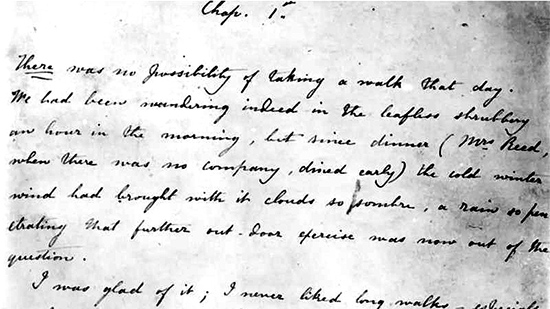 Chap. 1st
There was no possibility of taking a walk that day.
We had been wandering indeed in the leafless shrubbery
an hour in the morning, but since dinner (Mrs Reed,
when there was no company, dined early) the cold winter
wind had brought with it clouds so sombre, a rain so pen
etrating that further out-door exercise was now out of the
question.
I was glad of it; I never liked long walks - especially